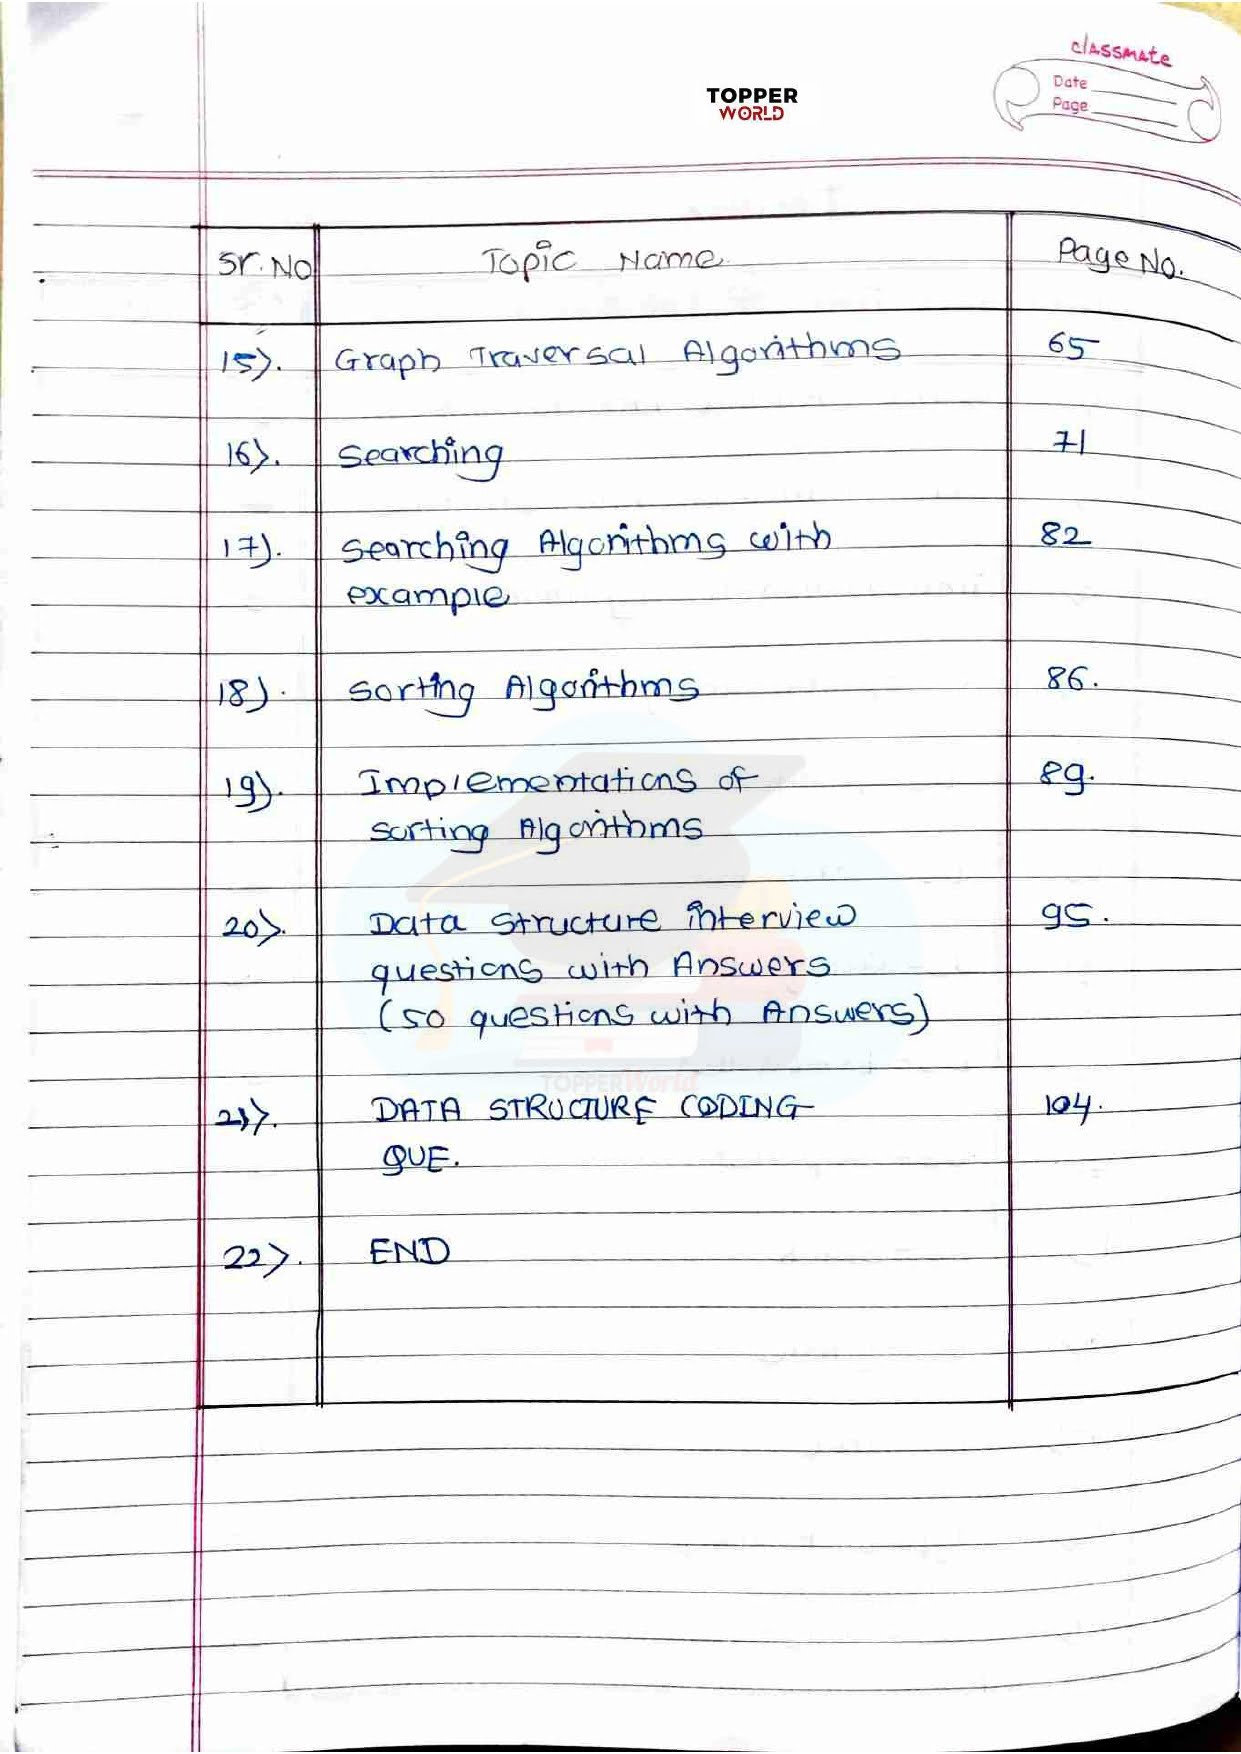 classmate
Date
Page
TOPPER
WORLD
Sr. No Topic Name Page No.
15). Graph Traversal Algorithms 65
16). Searching 71
17). Searching Algorithms with 82
example
18). Sorting Algorithms 86.
19). Implementations of 89.
Sorting Algorithms
20). Data Structure interview 95.
questions with Answers
(50 questions with Answers)
TOPPERWorld
21). DATA STRUCTURE CODING 104.
QUE.
22). END